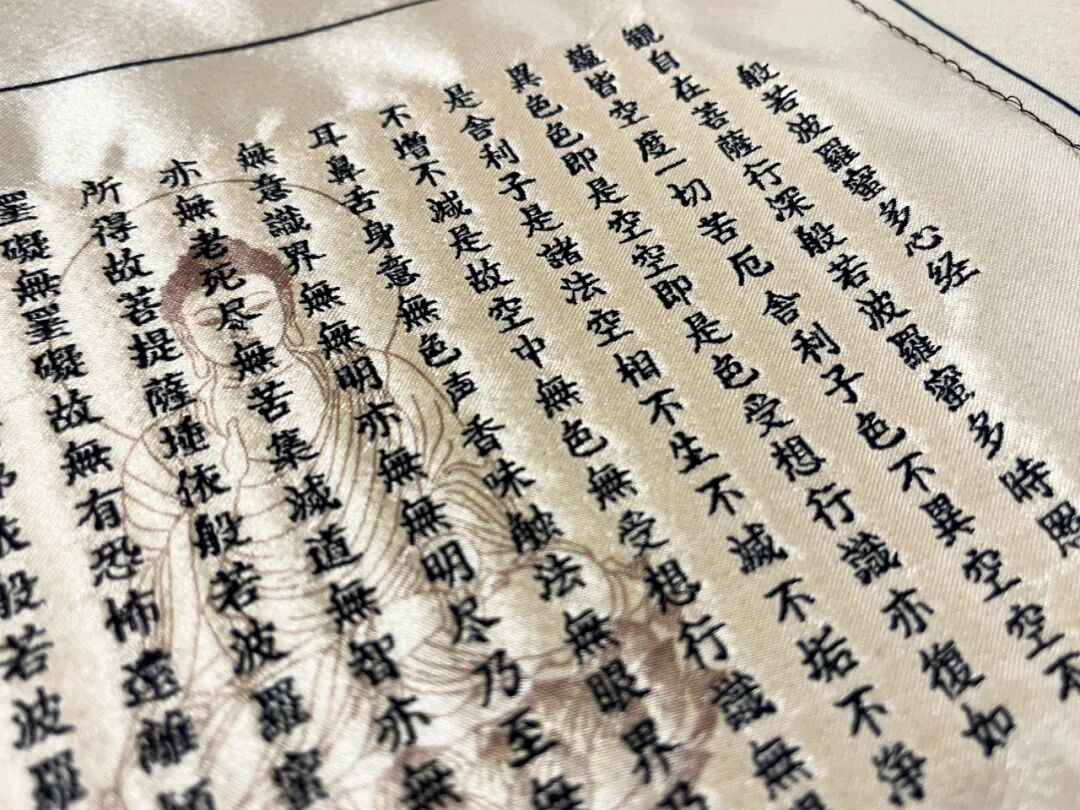 般若波羅蜜多心経
観自在菩薩行深般若波羅蜜多時
蘊皆空度一切苦厄舎利子色不異空空不
異色色即是空空即是色受想行識亦復如
是舎利子是諸法空相不生不滅不垢不浄
不増不減是故空中無色無受想行識無
耳鼻舌身意無色声香味触法無眼界乃
無意識界無無明亦無無明尽乃至無
亦無老死尽無苦集滅道無智亦無
所得故菩提薩埵依般若波羅蜜
罣礙無罣礙故無有恐怖遠離
依般若波羅